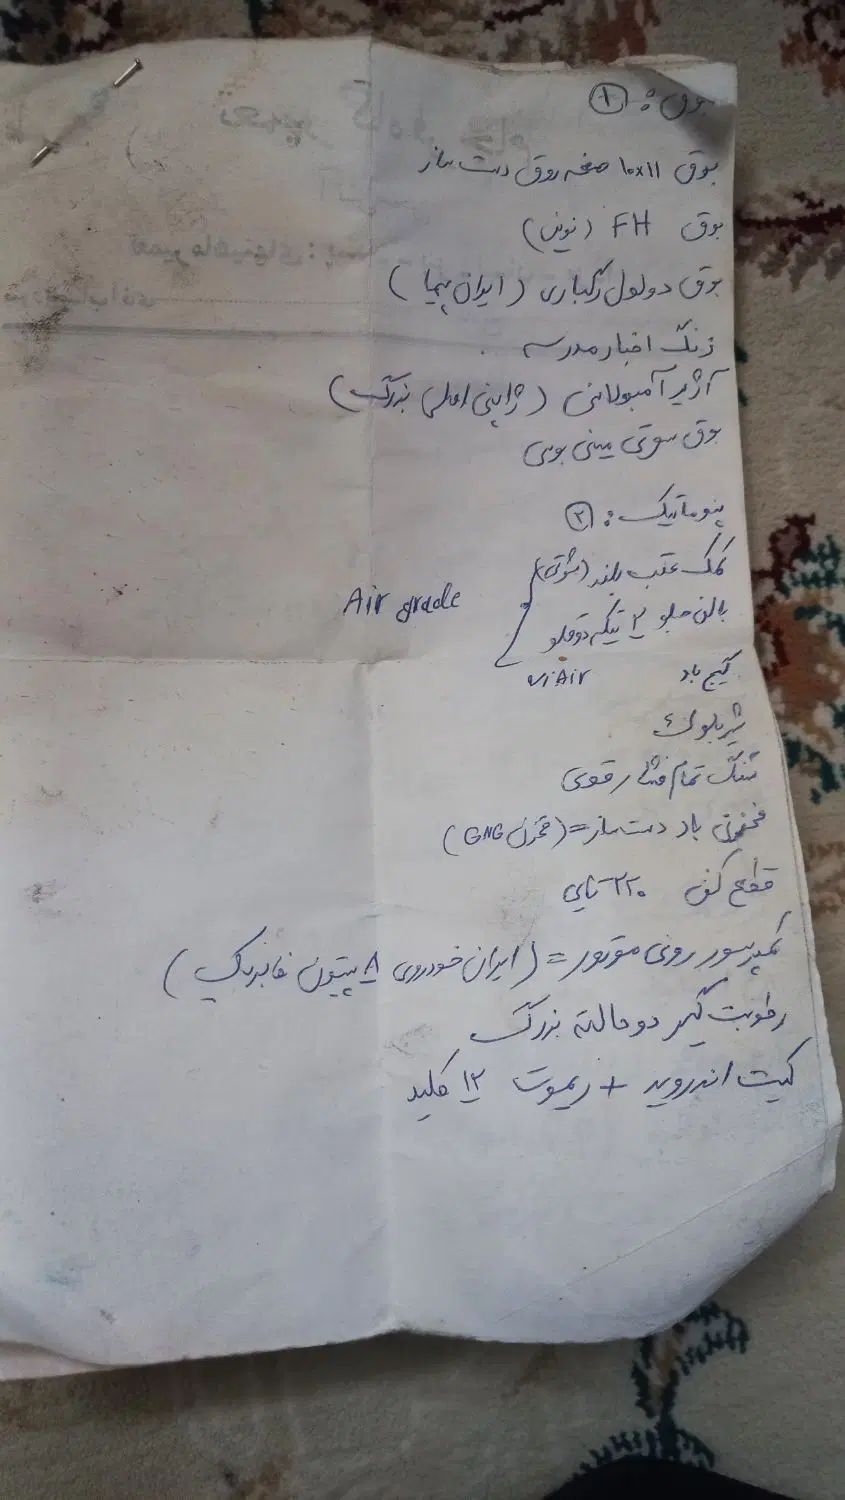 بوق : ①
بوق ۱۰x۱۱ صفحه روق دست ساز
بوق FH (نویز)
بوق دولول رگباری (ایران پیما)
زنگ اخبار مدرسه
آژیر آمبولانس (ژاپنی اصلی بزرگ)
بوق سوتی مینی بوس
پنوماتیک : ②
کمک عقب بلند (شوتی)
بالن جلو ۲ تیکه دوقلو
Air grade
گیج باد viAir
شیر بلوک
شنگ تمام فشار قوی
مخزن باد دست ساز = (مخزن GNG)
قطع کن ۲۲۰ تایی
کمپرسور رونی موتور = (ایران خودروی ۸ پیتون فابریک)
رطوبت گیر دو حالته بزرگ
کیت اندروید + ریموت ۱۲ کلید